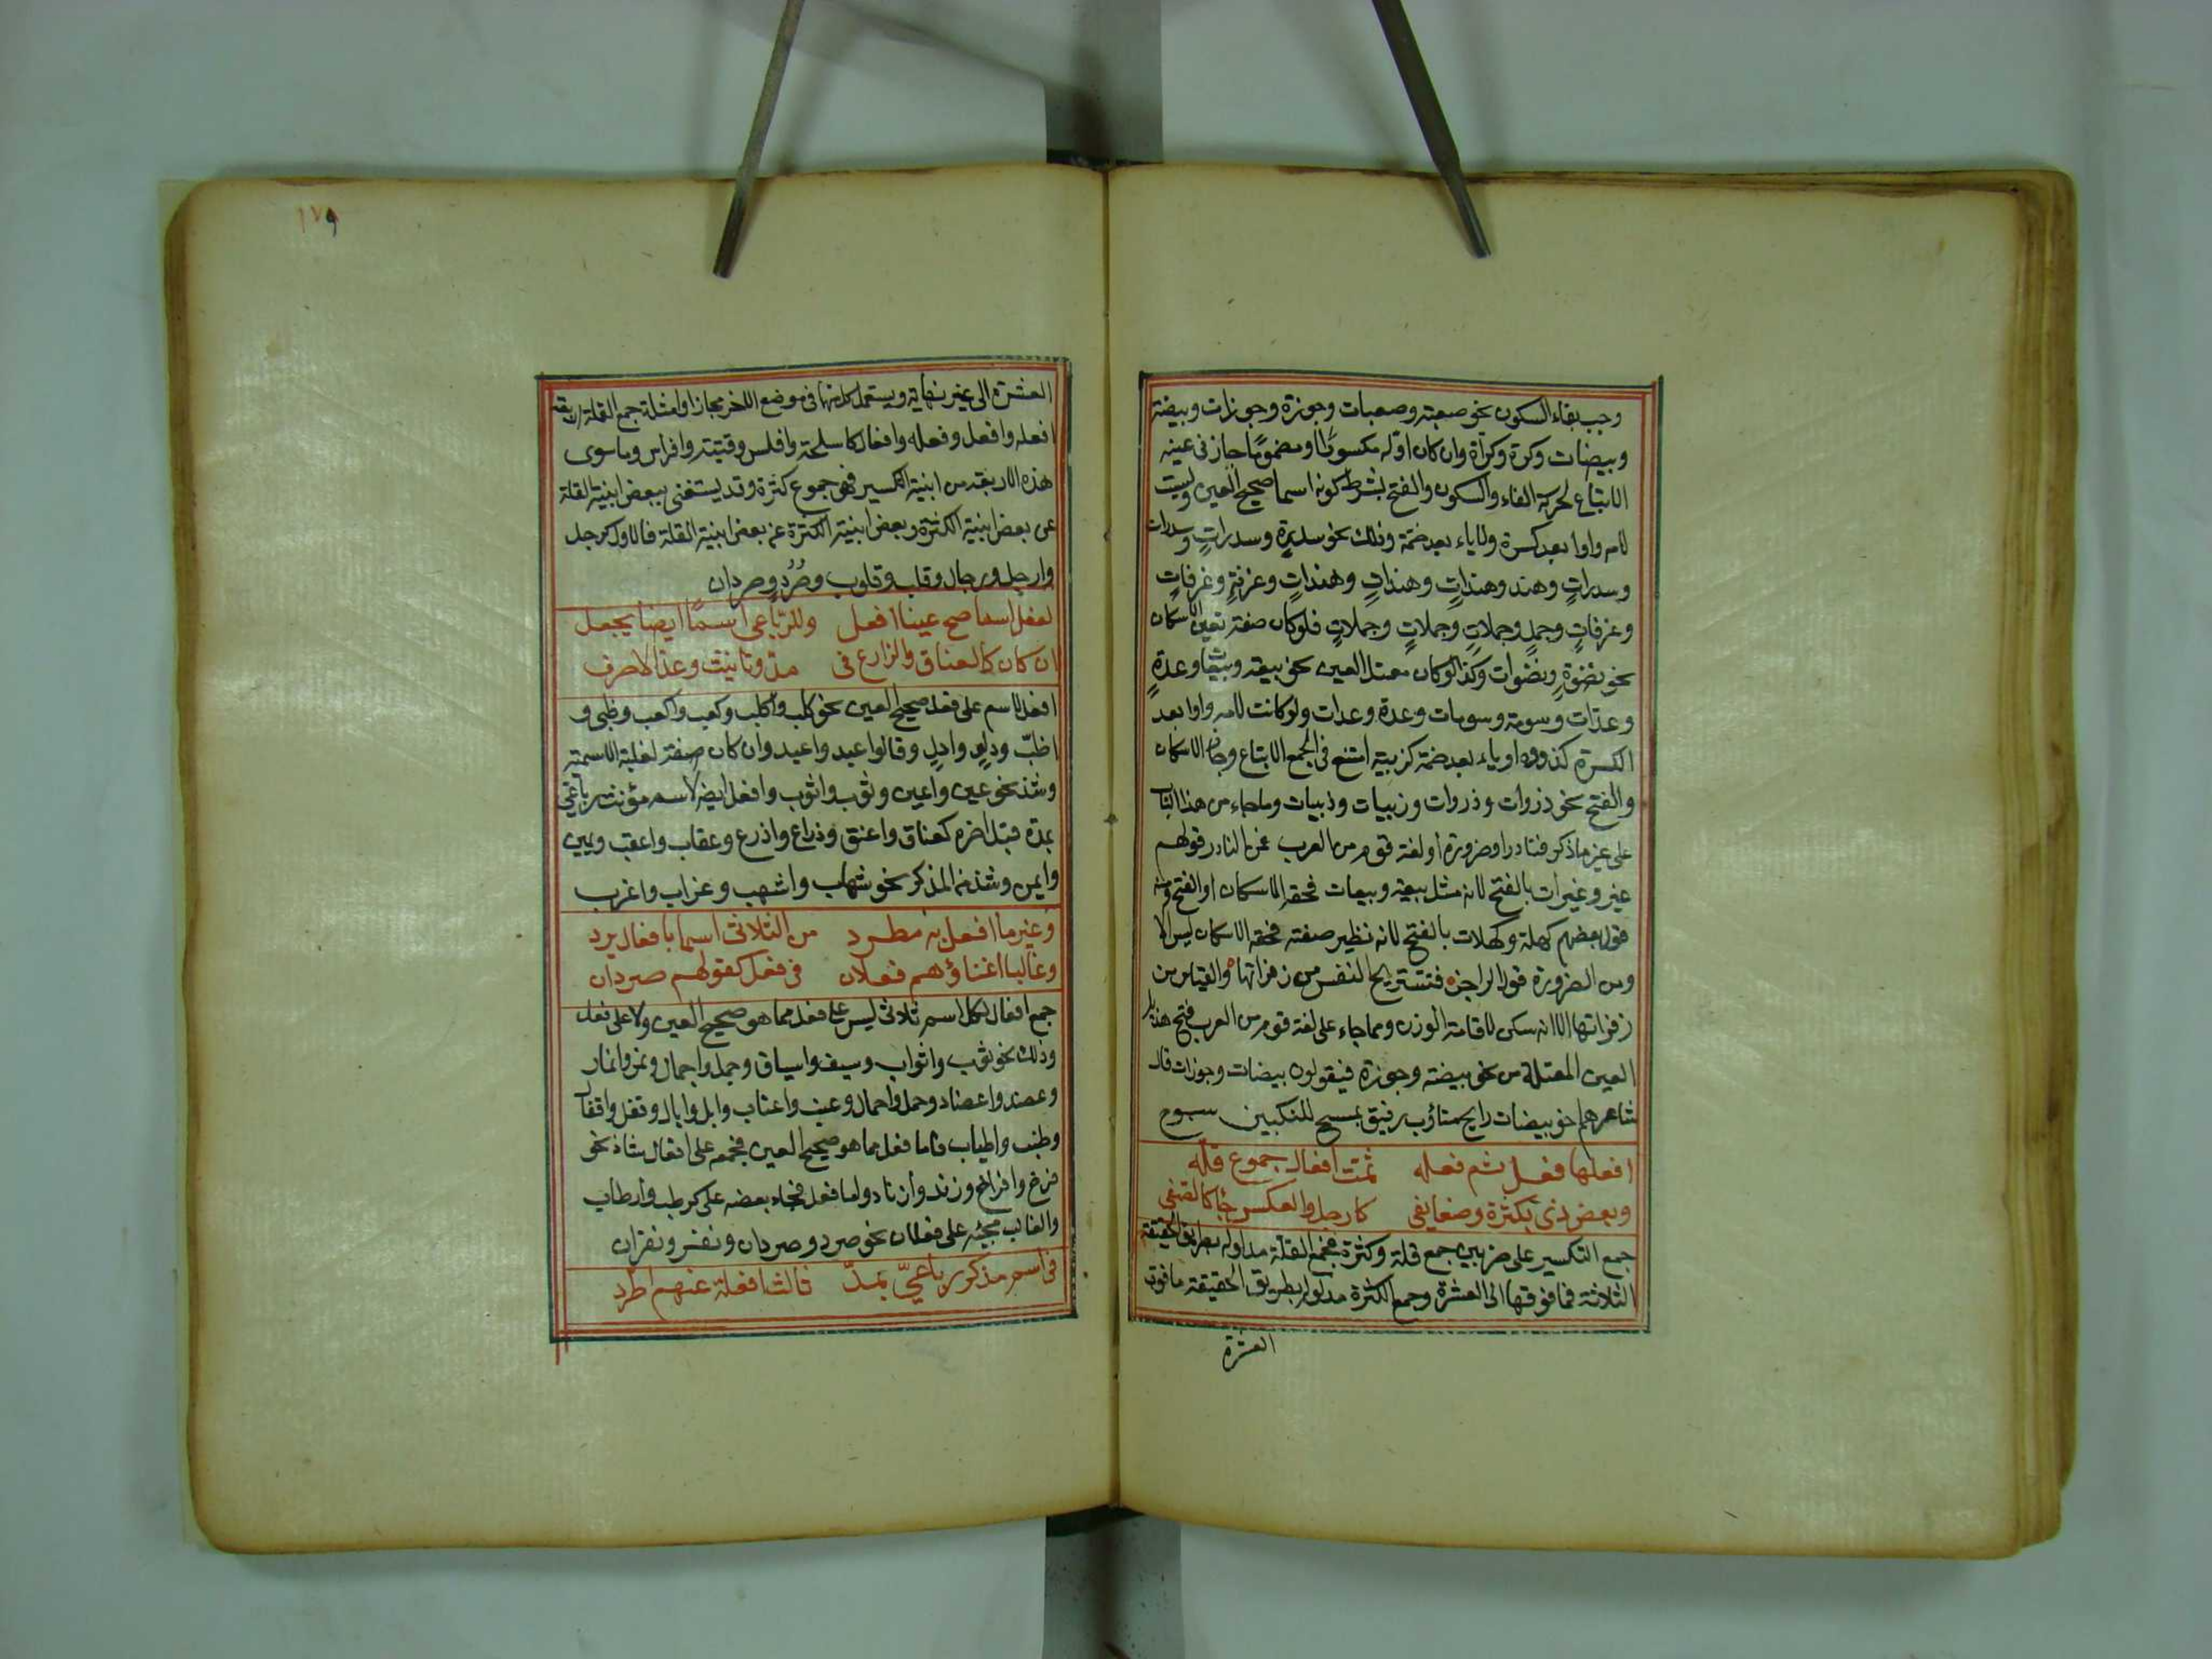 وجب بقاء السكون نحو صعبة وصعبات وجوزة وجوزات وبيضة
وبيضات وكرة وكرأة وان كان اوله مكسورًا او مضمومًا جاز في عينه
الاتباع لحركة الفاء والسكون والفتح بشرط كونه اسما صحيح العين وليست
لامه واوا بعد كسرة ولا ياء بعد ضمة وذلك نحو سدرة وسدراتٍ وسدرات
وسدراتٍ وهند وهنداتٍ وهنداتٍ وهنداتٍ وغرفةٍ وغرفاتٍ
وغرفاتٍ وجملٍ وجملاتٍ وجملاتٍ وجملاتٍ فلو كان صفة تعين الاسكان
نحو نضوةٍ ونضوات وكذا لو كان معتل العين نحو بيعة وبيعات وعدةٍ
وعدات وسومة وسومات وعدة وعدات ولو كانت لامه واوا بعد
الكسرة كذروه او ياء بعد ضمة كزبية امتنع في الجمع الاتباع وجاز الاسكان
والفتح نحو ذروات وذروات وزبيات وذبيات وما جاء من هذا الباب
على غير ما ذكر فنادر او ضرورة أو لغة قوم من العرب فمن النادر قولهم
عير وعيرات بالفتح لانه مثل بيعة وبيعات فحقه الاسكان او الفتح ومنه
قول بعضهم كهلة وكهلات بالفتح لانه نظير صفته فحقه الاسكان ليس الا
ومن الضرورة قول الراجز ه فتستريح النفس من زفراتها ه والقياس من
زفراتها الا انه سكن لاقامة الوزن ومما جاء على لغة قوم من العرب فتح هذيل
العين المعتلة من نحو بيضة وجوزة فيقولون بيضات وجوزات قال
شاعرهم اخو بيضات رايح متاؤب رفيق بمسح المنكبين سبوح
افعلها فعل ثم فعله ثمت افعال جموع قله
وبعض ذي بكثرة وضعا يفي كارجل والعكس جا كالصفي
جمع التكسير على ضربين جمع قلة وكثرة فجمع القلة مدلوله بطريق الحقيقة
الثلاثة فما فوقها الى العشرة وجمع الكثرة مدلوله بطريق الحقيقة ما فوق
العشرة
١٧٩
العشرة الى غير نهاية ويستعمل كل منها في موضع الاخر مجازا وامثلة جمع القلة اربعة
افعله وافعل وفعله وافعال كاسلحة وافلس وفتية وافراس وما سوى
هذه الاربعة من ابنية التكسير فهى جموع كثرة وقد يستغنى ببعض ابنية القلة
عن بعض ابنية الكثرة وبعض ابنية الكثرة عن بعض ابنية القلة فالاول كرجل
وارجل ورجال وقلب وقلوب وصُرَدٍ وصردان
لفعل اسما صح عينا افعل وللرّباعى اسمًا ايضا يجعل
ان كان كالعناق والذراع في مدّ وتانيث وعدّ الاحرف
افعل لاسم على فعل صحيح العين نحو كلب واكلب وكعب واكعب وظبى و
اظبٍ ودلوٍ وادلٍ وقالوا عبد واعبد وان كان صفة لغلبة الاسمية
وشذ نحو عين واعين وثوب واثوب وافعل ايضا لاسم مؤنث رباعي
بمدة قبل اخره كعناق واعنق وذراع واذرع وعقاب واعقب ويمين
وايمن وشذ من المذكر نحو شهاب واشهب وغراب واغرب
وغير ما افعل به مطرد من الثلاثى اسما بافعال يرد
وغالبا اغناؤهم فعلان فى فعل كقولهم صردان
جمع افعال لكل اسم ثلاثى ليس على فعل مما هو صحيح العين ولا على فعل
وذلك نحو ثوب واثواب وسيف واسياف وجمل واجمال ونمر وانمار
وعضد واعضاد وحمل واحمال وعنب واعناب وابل وابال وقفل واقفال
وطنب واطناب فاما فعل مما هو صحيح العين فجمعه على افعال شاذ نحو
فرخ وافراخ وزند وازناد واما فعل فجاء بعضه على كرطب وارطاب
والغالب مجيئه على فعلان نحو صرد وصردان ونغر ونغران
فى اسم مذكر رباعىّ بمدّ ثالث افعلة عنهم اطّرد